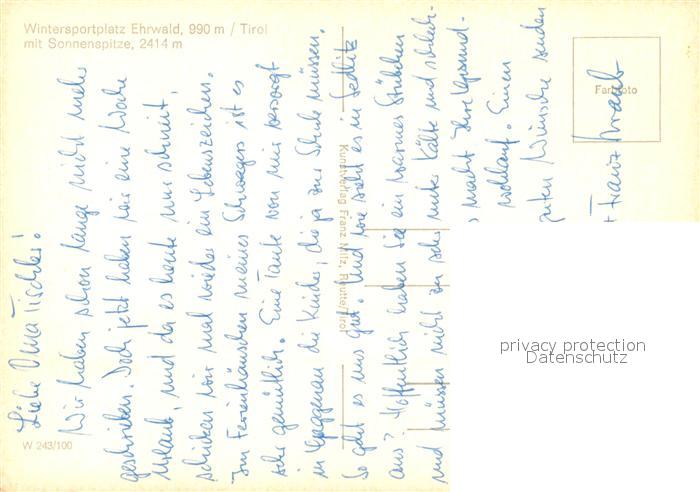 Wintersportplatz Ehrwald, 990 m / Tirol
mit Sonnenspitze, 2414 m
Liebe Oma Tischler!
Wir haben schon lange nicht mehr
geschrieben. Doch jetzt haben wir eine Woche
Urlaub, und da es heute nur schneit,
schicken wir mal wieder ein Lebenszeichen.
Im Ferienhäuschen meines Schwagers ist es
sehr gemütlich. Eine Tante von mir versorgt
in Gaggenau die Kinder, die ja zur Schule müssen.
So geht es uns gut. Und wie sieht es in Sedlitz
aus? Hoffentlich haben Sie ein warmes Stübchen
und müssen nicht zu sehr unter Kälte und
macht Ihre Gesund-
wohlauf. Einen
guten Wünsche senden
Franz
Farbfoto
Kunstverlag Franz Milz, Reutte/Tirol
W 243/100
privacy protection
Datenschutz